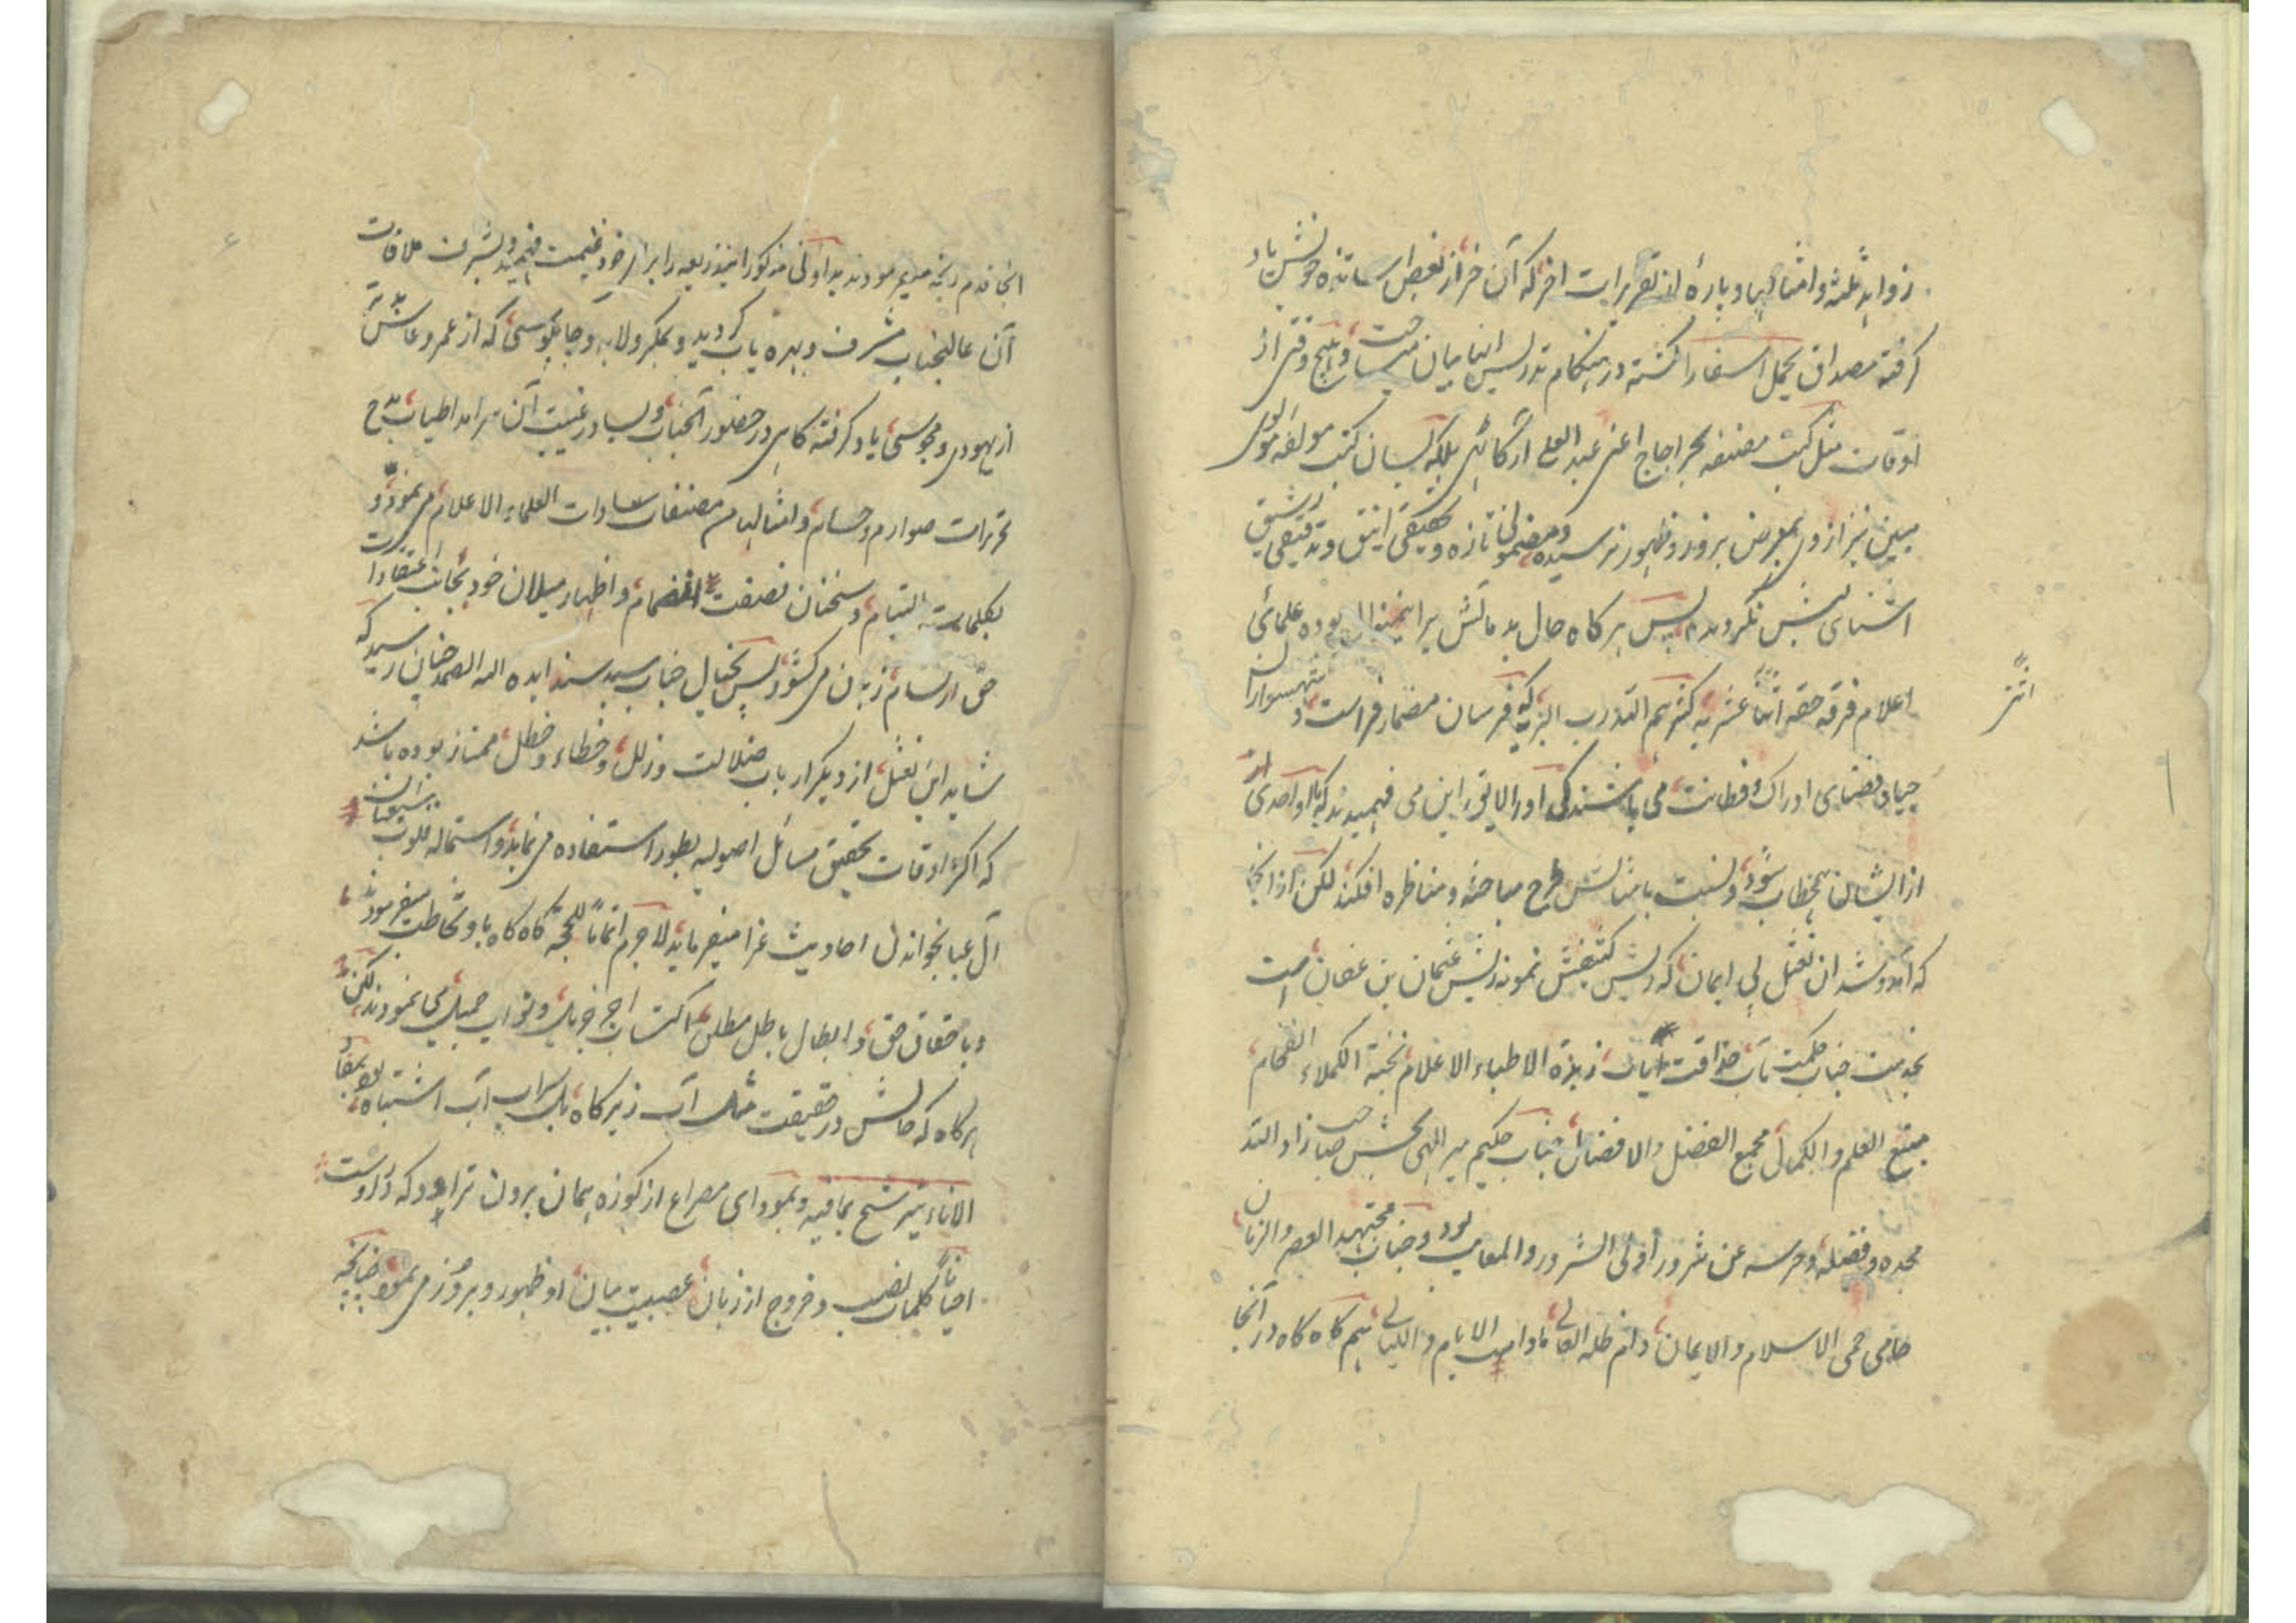 زواید ثلثه و امثالها و پارهٔ از تقریرات اخر که آن خر از بعض اساتذه خویش یاد
گرفته مصداق یحمل اسفارا گشته در هنگام تدریس انها بیان میساخت و هیچ وقتی از
اوقات مثل کتب مصنفه بحر اجاج اعنی عبد العلی ارکاتی بلکه بسان کتب مولفه مولوی
مبین نیز از وی بمعرض بروز و ظهور نرسیده و مضمونی تازه و تحقیقی انیق و تدقیقی رشیق
اشنای لبش نگردیده پس هر گاه حال بد مآلش برینمنوال بوده علمائ
اعلام فرقه حقه اثنا عشریه کثرهم الله رب البریه که فرسان مضمار فراست و شهسواران
اثنیٰ
جیاد فضای ادراک و فطانت می باشند کی او را لایق این می فهمیدند که بلا واحدی از
ازایشان مخطاب شود و نسبت بامثالش طرح مباحثه و مناظره افکند لکن ازانجا
که آمد و شد ان نعثل بی ایمان که ریش کثیفش نمونه ریش عثمان بن عفان است
بخدمت جناب حکمت مآب حذاقت زبدة الاطباء الاعلام نخبة الکملاء الفخام
منبع العلم والکمال مجمع الفضل والافضال جناب حکیم میر الهی بخش صاحب زاد الله
مجده و فضله و حرسه عن شرور اولی الشرور والمعایب بود و جناب مجتهد العصر والزمان
حامی حمی الاسلام والایمان دام ظله العالی مادامت الایام واللیالی هم گاه گاه در آنجا
انجا قدم رنجه میفرمودند بداونی مذکور اینذریعه را برای خود غنیمت فهمیده بشرف ملاقات
آن عالیجناب مشرف و بهره یاب گردید و بمکر و لابه و چاپلوسی که از عمر و عاشیه
از یهودی و مجوسی یاد گرفته گاهی در حضور آنجناب و بسا در غیبت آن سرامد اطیاب مدح
تحریرات صوارم و حسام و امثالهما من مصنفات سادات العلماء الاعلام می نمود و
بکلمات التیام و سخنان نصفت انضمام و اظهار میلان خود بجانب اعتقادات
حق ارتسام زبان می کشود پس بخیال جناب سید سند ایده الله الصمد چنان رسید که
شاید این نعثل از دیگر ارباب ضلالت و زلل و خطاء و خطل ممتاز بوده باشد
که اکثر اوقات تحقیق مسائل اصولیه بطور استفاده می نماید و استماله قلوب شیعیان
آل عبا بخواندن احادیث غرا میفرماید لاجرم اتماما للحجة گاه گاه با و تخاطب میفرمود
و باحقاق حق و ابطال باطل مطلق اکتساب اجر جزیل و ثواب جمیل می نمودند لکن
هر گاه که حالش در حقیقت مثل آب زیر کاه بلکه سراب آب اشتباه بود بمفاد
الاناء یترشح بما فیه و بمودای مصراع از کوزه همان برون تراود که در اوست
احیانا کلمات نصب و خروج از زبان عصبیت بیان او ظهور و بروز می نمود چنانچه